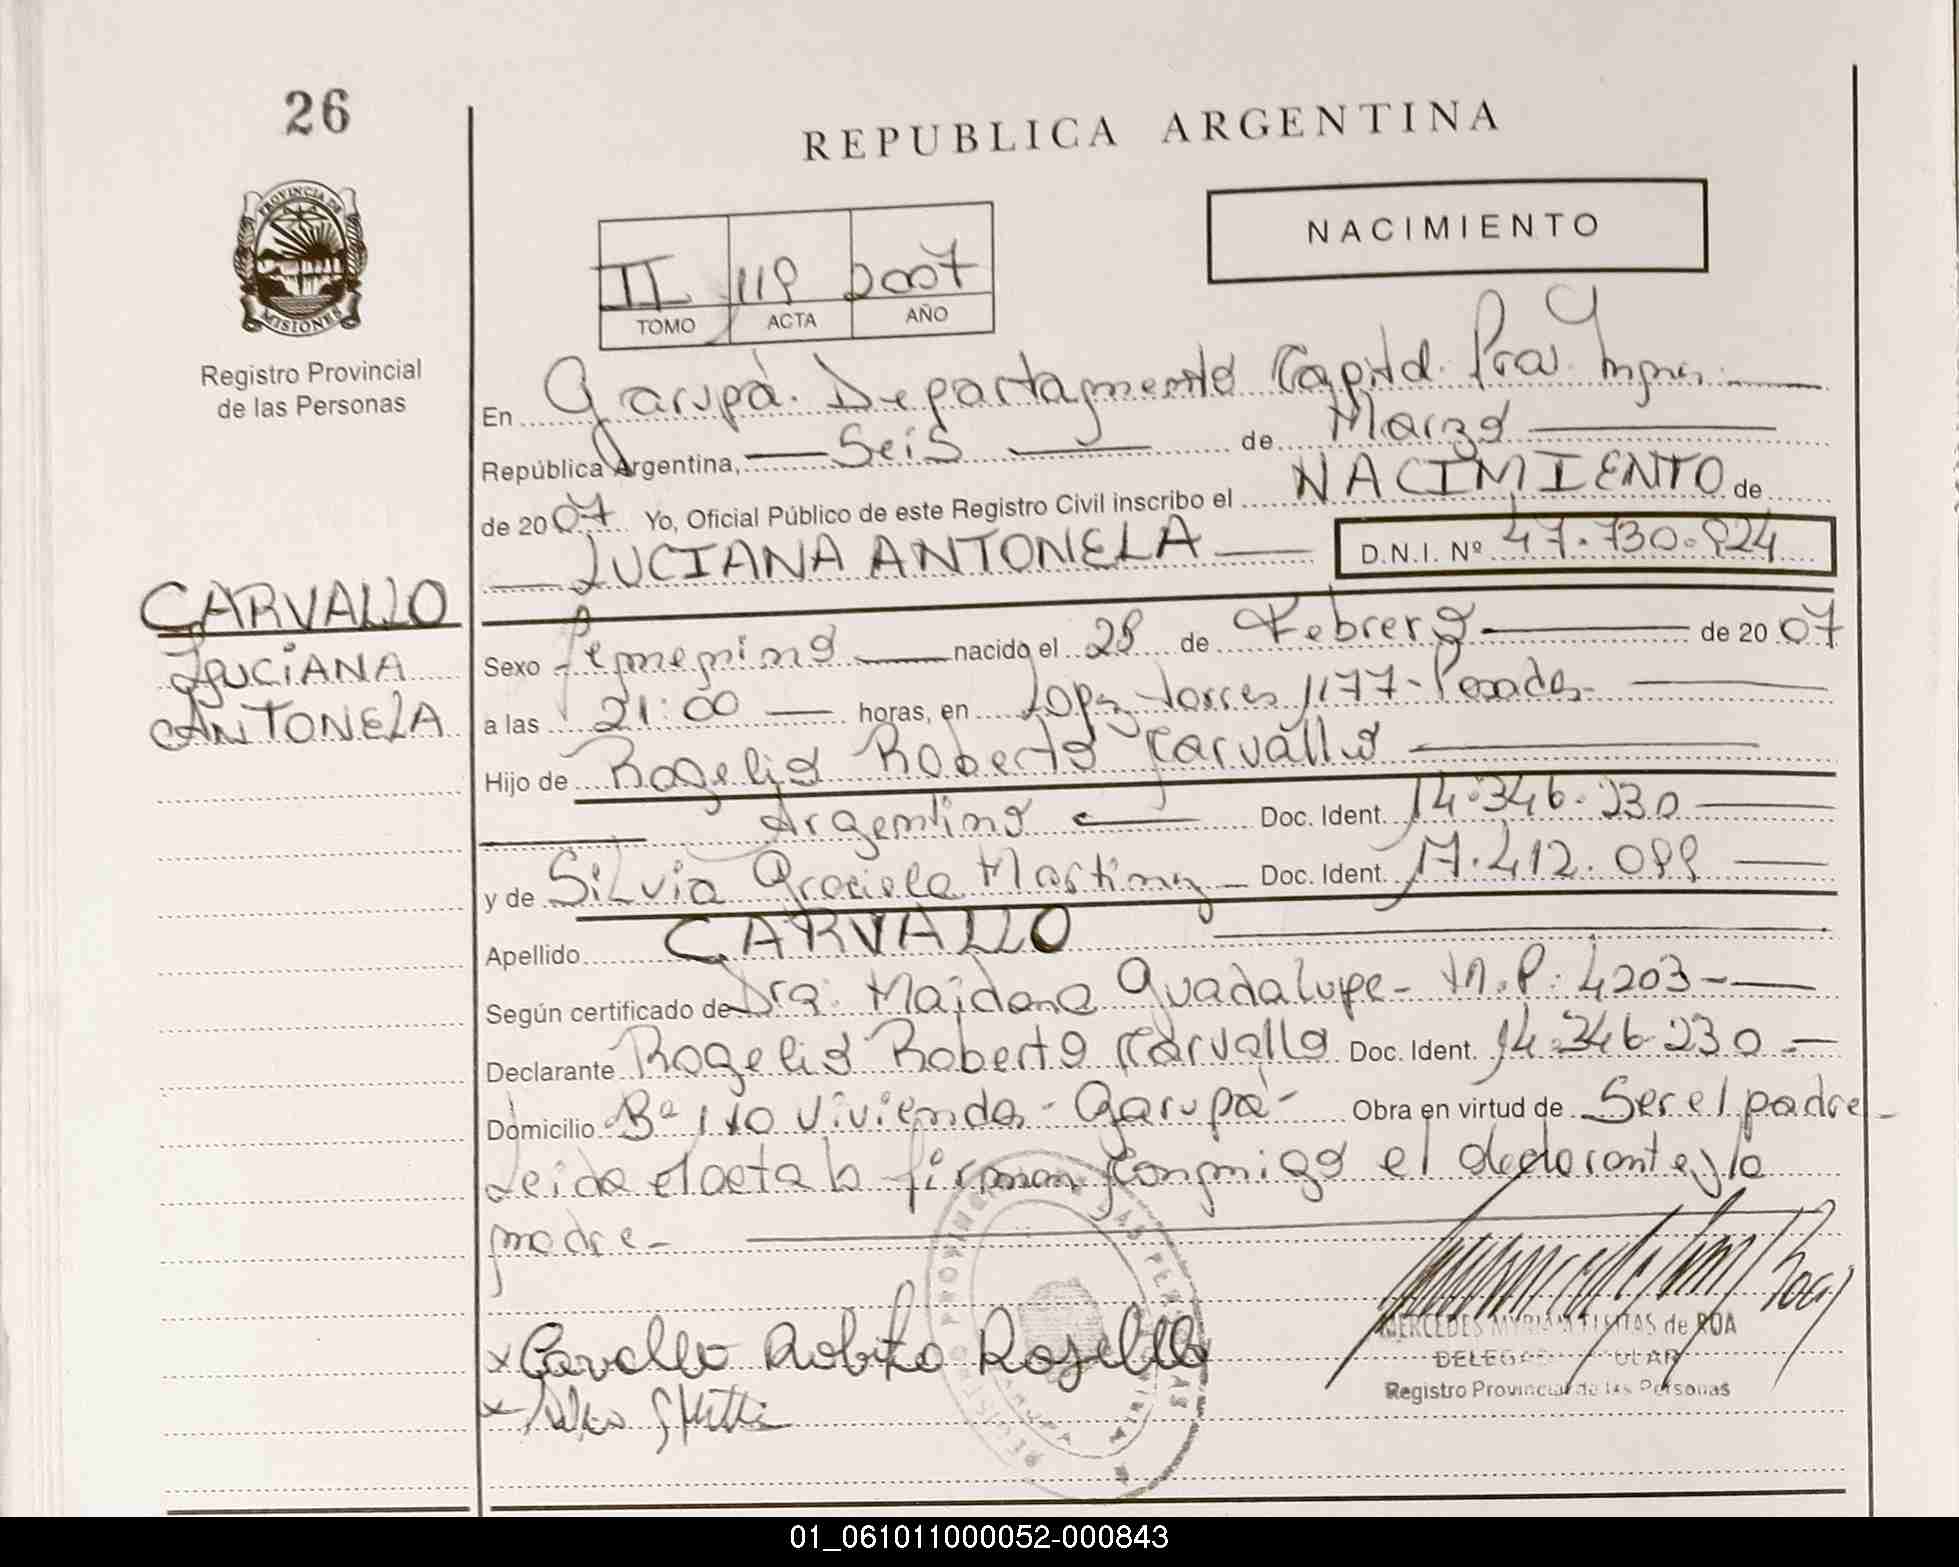 26
REPUBLICA ARGENTINA
PROVINCIA DE
MISIONES
Registro Provincial
de las Personas
NACIMIENTO
II 119 2007
TOMO ACTA AÑO
En Garupá. Departamento Capital. Pcia.
República Argentina, Seis de Marzo
de 2007 Yo, Oficial Público de este Registro Civil inscribo el NACIMIENTO de
LUCIANA ANTONELA D.N.I. Nº 47.730.924
CARVALLO
LUCIANA
ANTONELA
Sexo femenino nacido el 28 de Febrero de 2007
a las 21:00 horas, en Lopez Torres 1177- Posadas-
Hijo de Rogelio Roberto Carvallo
Argentino Doc. Ident. 14.346.230
y de Silvia Graciela Martinez Doc. Ident. 17.412.099
Apellido CARVALLO
Según certificado de Dra. Maidana Guadalupe- M.P: 4203-
Declarante Rogelio Roberto Carvallo Doc. Ident. 14.346.230
Domicilio Bº viviendas- Garupá- Obra en virtud de Ser el padre-
Leida el acta la firman conmigo el declarante y la
madre-
x Carvallo Roberto Rogelio
MERCEDES MYRIAM de ROA
Registro Provincial de las Personas
01_061011000052-000843